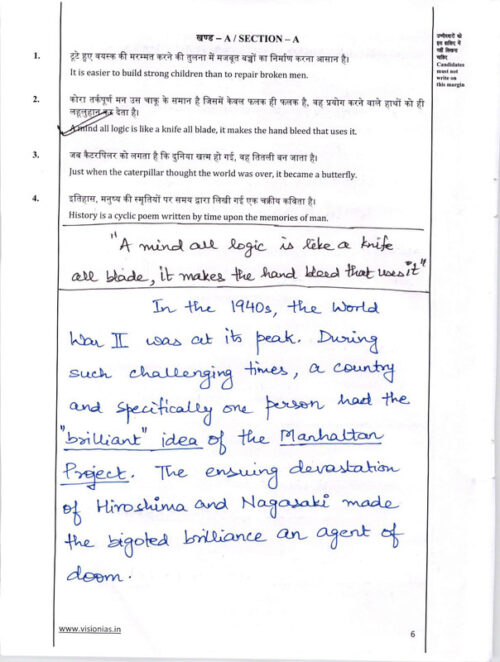 खण्ड – A / SECTION – A
उम्मीदवारों को
इस हाशिए में
नहीं लिखना
चाहिए
Candidates
must not
write on
this margin
1. टूटे हुए वयस्क की मरम्मत करने की तुलना में मजबूत बच्चों का निर्माण करना आसान है।
It is easier to build strong children than to repair broken men.
2. कोरा तर्कपूर्ण मन उस चाकू के समान है जिसमें केवल फलक ही फलक है, वह प्रयोग करने वाले हाथों को ही
लहूलुहान कर देता है।
A mind all logic is like a knife all blade, it makes the hand bleed that uses it.
3. जब कैटरपिलर को लगता है कि दुनिया खत्म हो गई, वह तितली बन जाता है।
Just when the caterpillar thought the world was over, it became a butterfly.
4. इतिहास, मनुष्य की स्मृतियों पर समय द्वारा लिखी गई एक चक्रीय कविता है।
History is a cyclic poem written by time upon the memories of man.
"A mind all logic is like a knife
all blade, it makes the hand bleed that uses it"
In the 1940s, the World
War II was at its peak. During
such challenging times, a country
and specifically one person had the
"brilliant" idea of the Manhattan
Project. The ensuing devastation
of Hiroshima and Nagasaki made
the bigoted brilliance an agent of
doom.
www.visionias.in
6